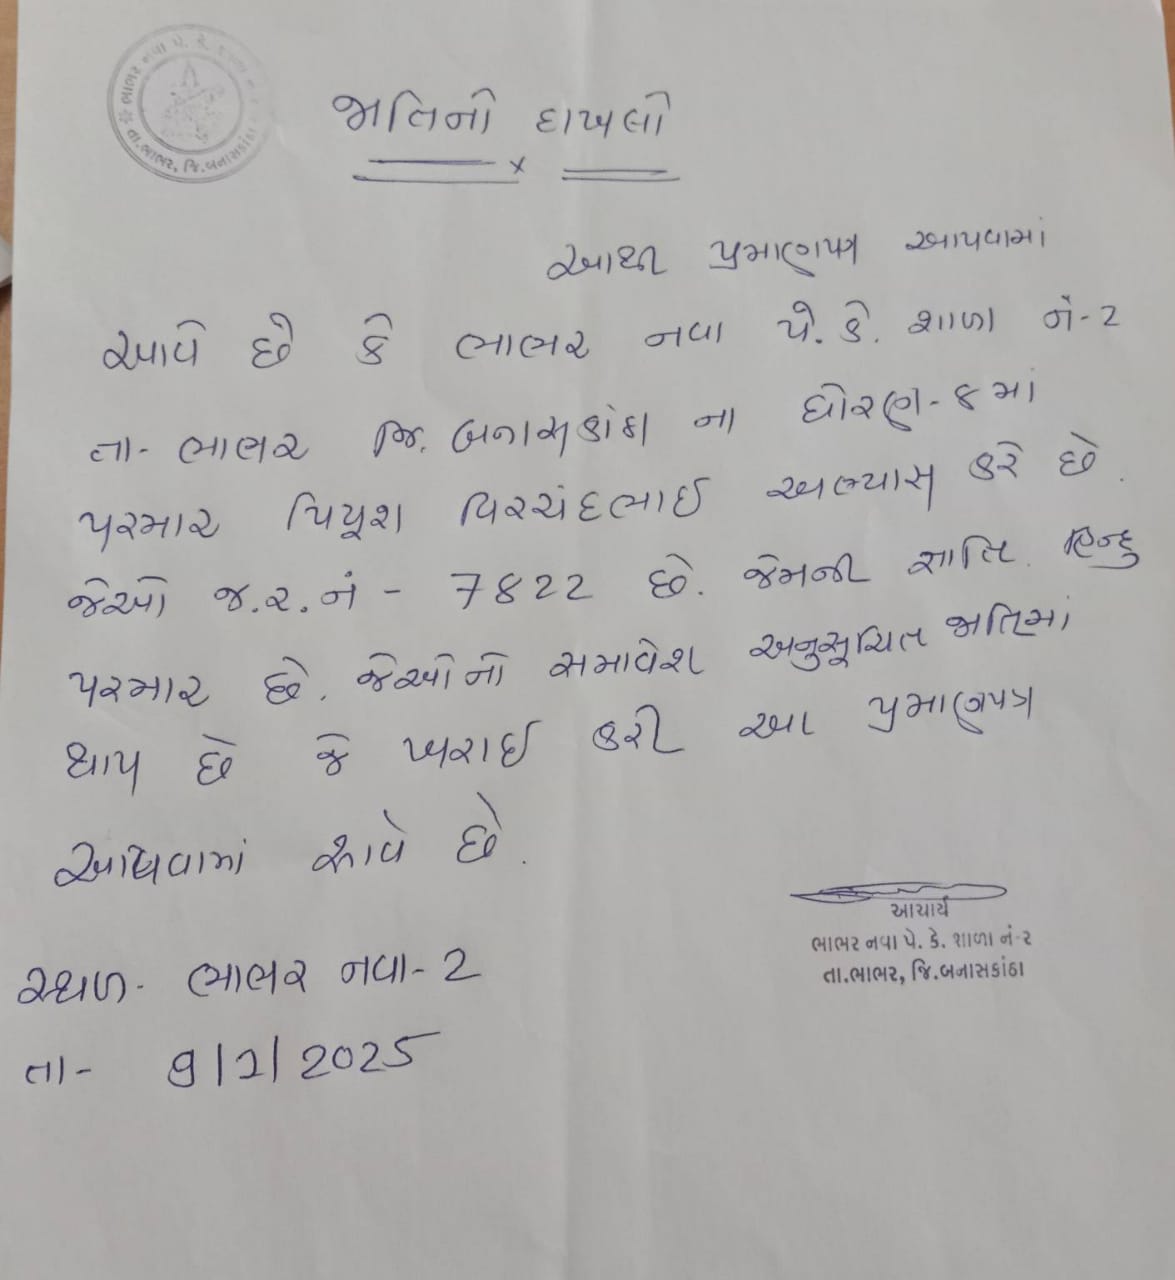 જાતિનો દાખલો
આથી પ્રમાણપત્ર આપવામાં
આવે છે કે ભાભર નવા પે. કે. શાળા નં-2
તા- ભાભર જિ. બનાસકાંઠા ના ધોરણ-8માં
પરમાર પિયૂશ વિરચંદભાઈ અભ્યાસ કરે છે.
જેઓ જ.ર.નં - 7822 છે. જેમની જ્ઞાતિ હિન્દુ
પરમાર છે. જેઓનો સમાવેશ અનુસૂચિત જાતિમાં
થાય છે જે ખરાઈ કરી આ પ્રમાણપત્ર
આપવામાં આવે છે.
આચાર્ય
ભાભર નવા પે. કે. શાળા નં-ર
તા.ભાભર, જિ.બનાસકાંઠા
સ્થળ- ભાભર નવા-2
તા- 9/1/2025
તા.ભાભર, જિ.બનાસકાંઠા